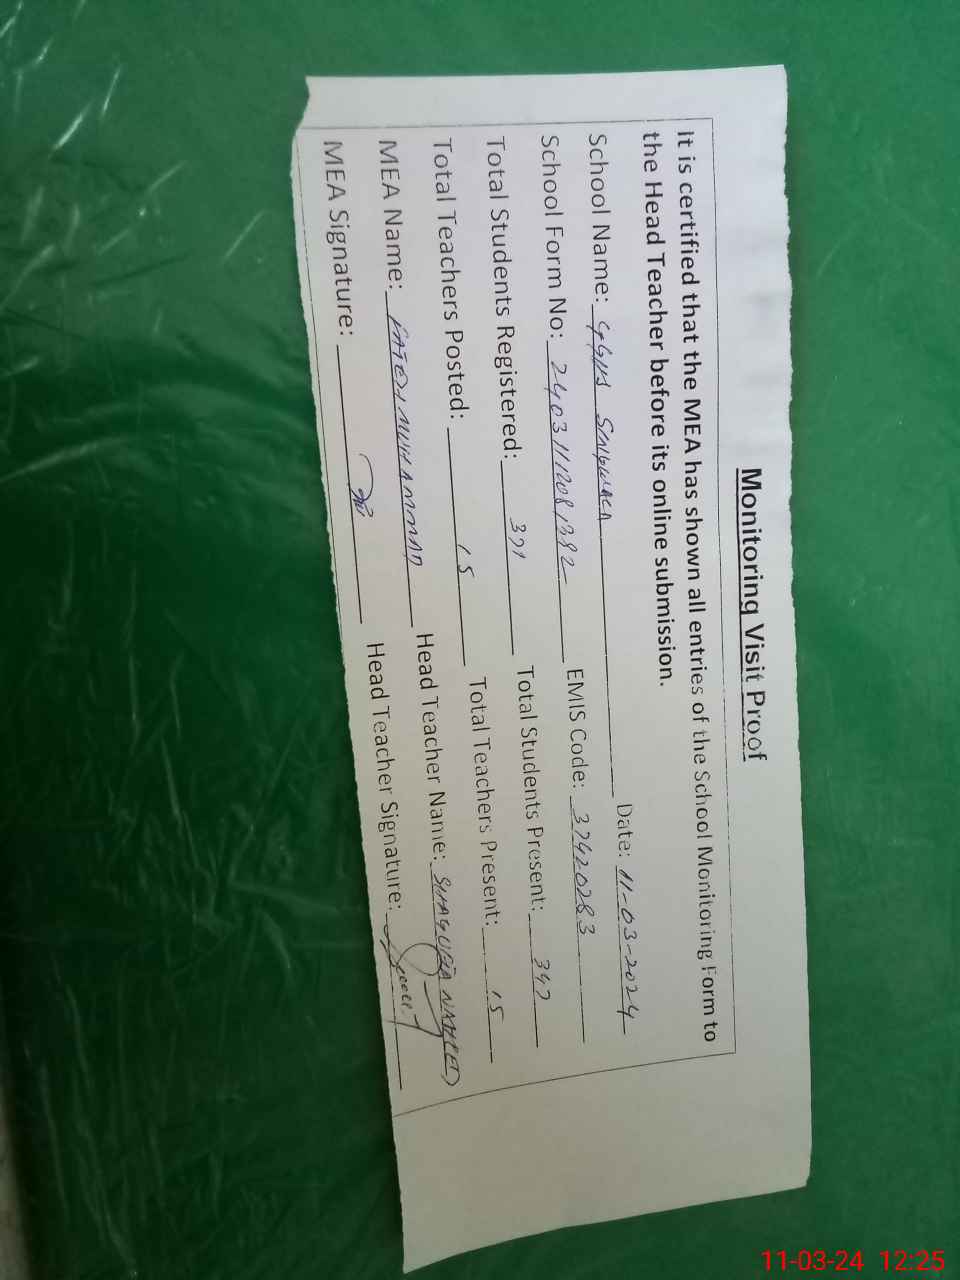 Monitoring Visit Proof
It is certified that the MEA has shown all entries of the School Monitoring Form to
the Head Teacher before its online submission.
Date: 11-03-2024
School Name:
School Form No: 24031112081382 EMIS Code: 37420283
Total Students Registered: 391 Total Students Present: 347
Total Teachers Posted: 15 Total Teachers Present: 15
MEA Name: FATEH MUHAMMAD Head Teacher Name: SHAGUFTA NAHEED
MEA Signature: Head Teacher Signature:
11-03-24 12:25